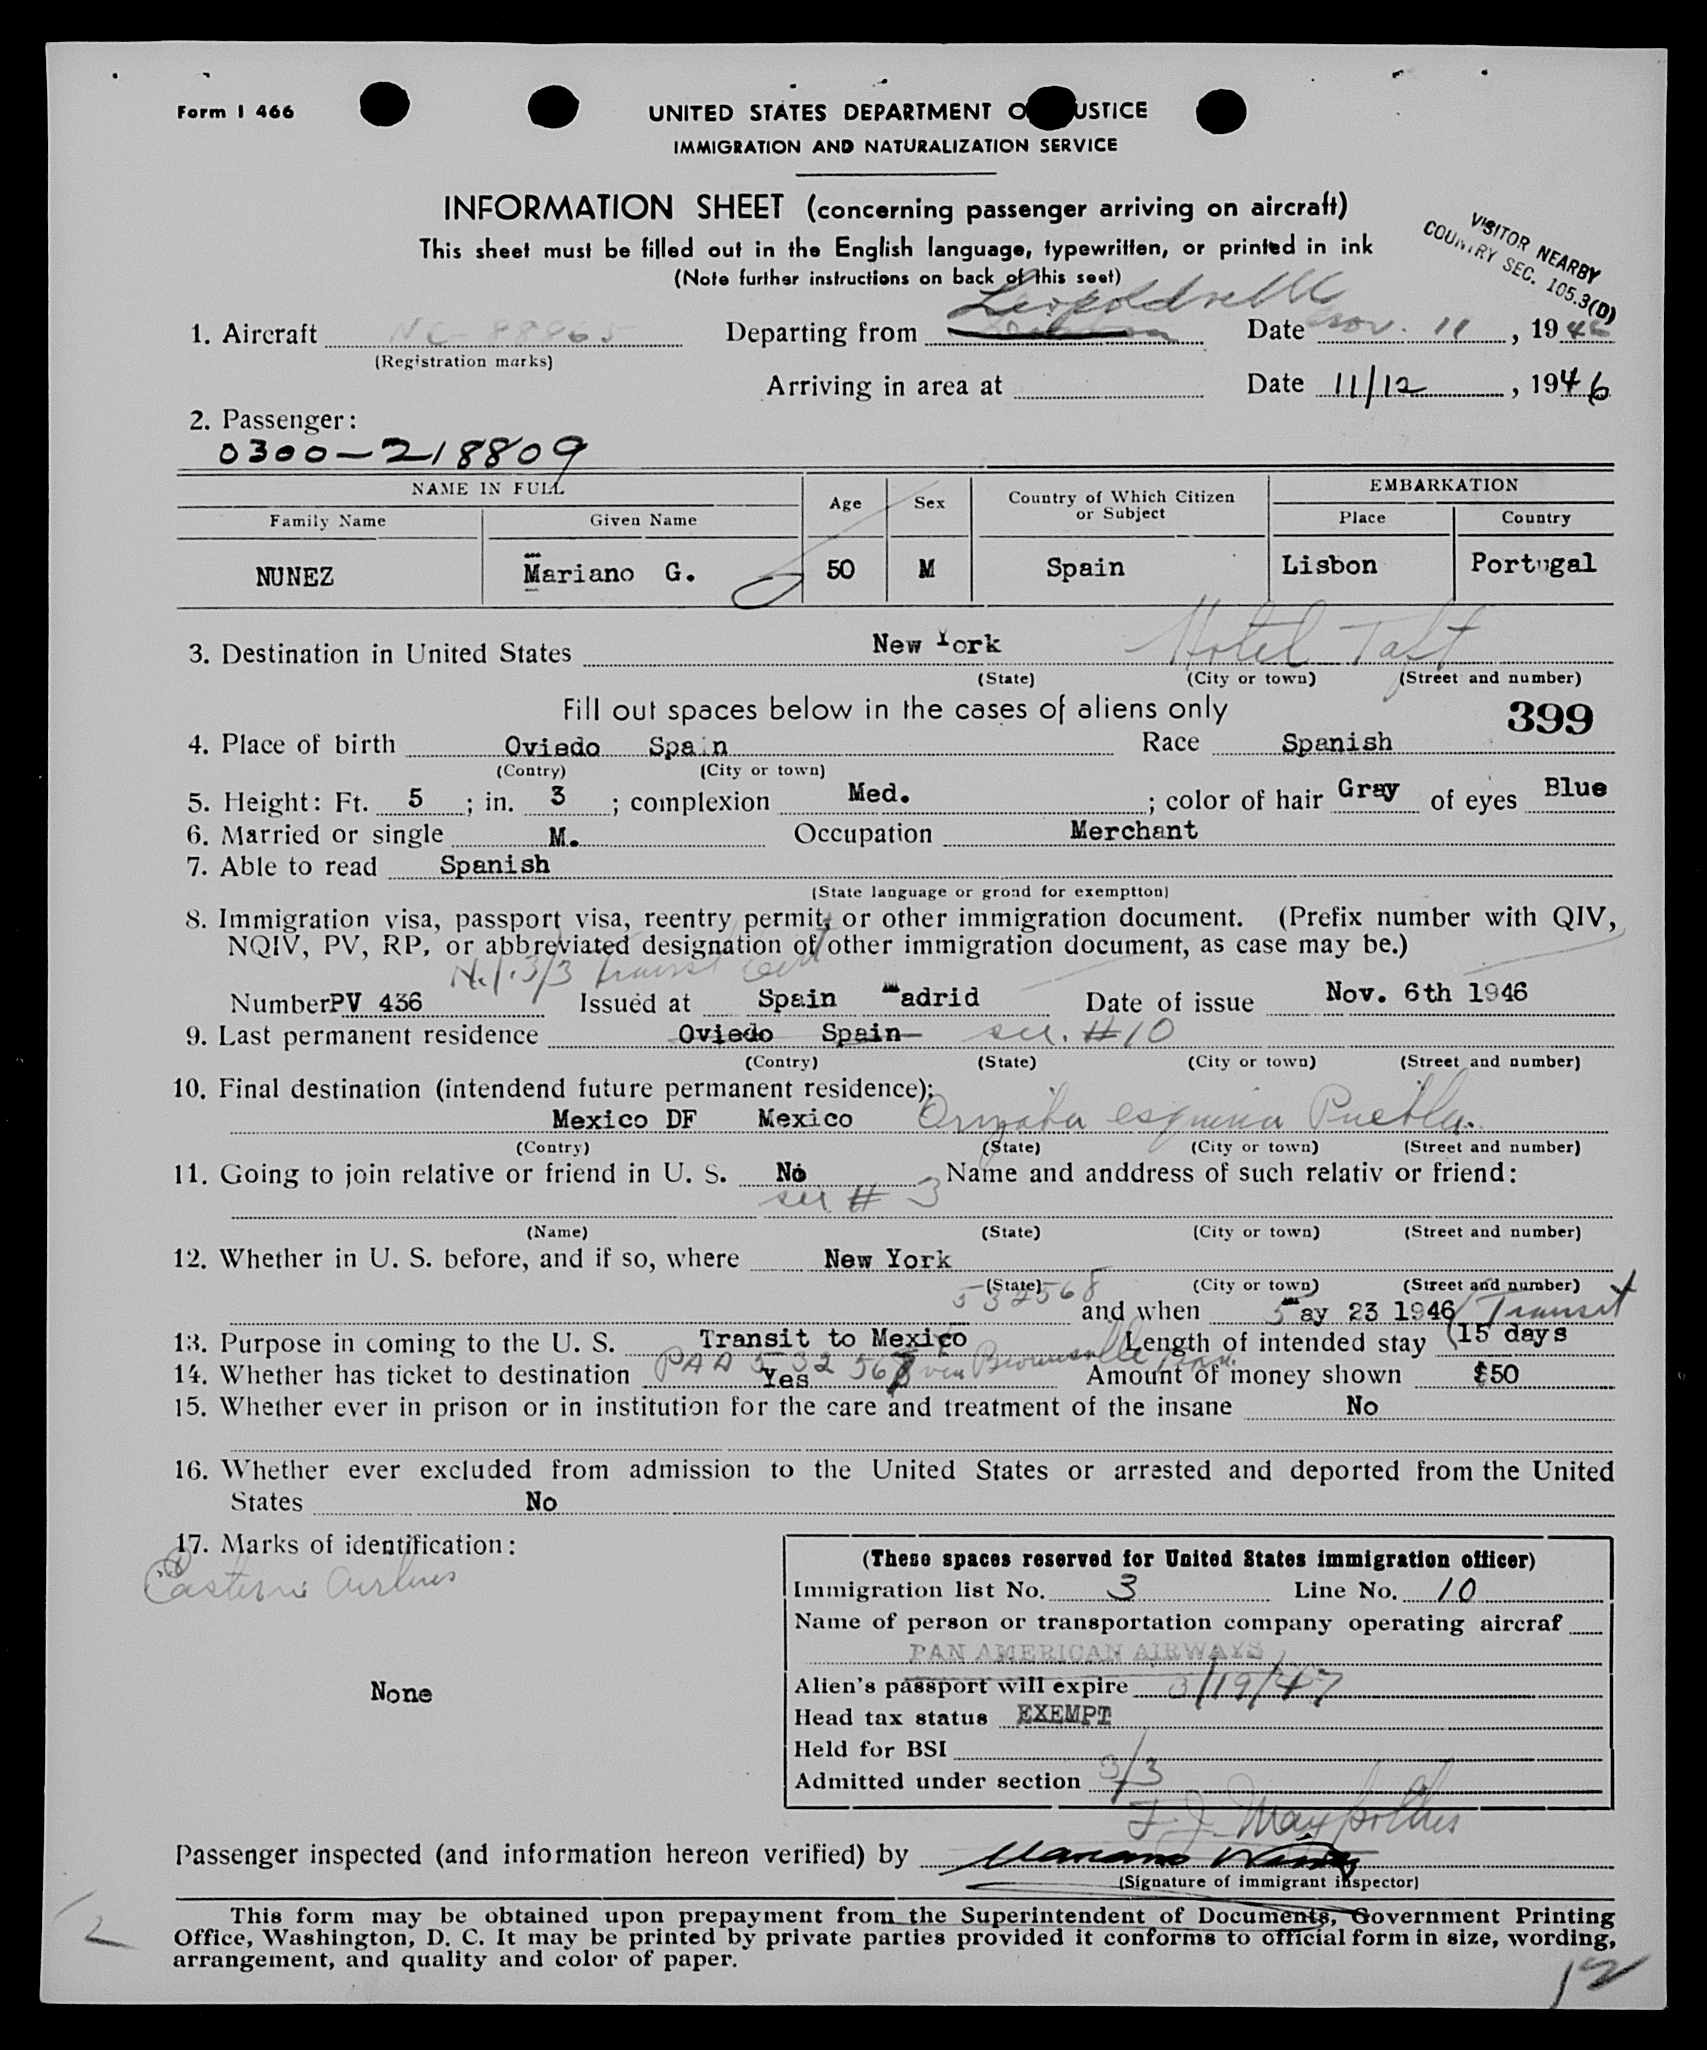 Form I 466
UNITED STATES DEPARTMENT O USTICE
IMMIGRATION AND NATURALIZATION SERVICE
INFORMATION SHEET (concerning passenger arriving on aircraft)
This sheet must be filled out in the English language, typewritten, or printed in ink
(Note further instructions on back of this seet)
VISITOR NEARBY
COUNTRY SEC. 105.3(D)
Leopoldville
1. Aircraft NC-88865 Departing from Date Nov. 11, 1946
(Registration marks)
Arriving in area at Date 11/12, 1946
2. Passenger:
0300-218809
NAME IN FULL Age Sex Country of Which Citizen or Subject EMBARKATION
Family Name Given Name Place Country
NUNEZ Mariano G. 50 M Spain Lisbon Portugal
3. Destination in United States New York Hotel Taft
(State) (City or town) (Street and number)
Fill out spaces below in the cases of aliens only 399
4. Place of birth Oviedo Spain Race Spanish
(Contry) (City or town)
5. Height: Ft. 5; in. 3; complexion Med.; color of hair Gray of eyes Blue
6. Married or single M. Occupation Merchant
7. Able to read Spanish
(State language or grond for exemptton)
8. Immigration visa, passport visa, reentry permit, or other immigration document. (Prefix number with QIV,
NQIV, PV, RP, or abbreviated designation of other immigration document, as case may be.)
3/3 Transit Cert
Number PV 436 Issued at Spain Madrid Date of issue Nov. 6th 1946
9. Last permanent residence Oviedo Spain see #10
(Contry) (State) (City or town) (Street and number)
10. Final destination (intendend future permanent residence):
Mexico DF Mexico Orizaba esquina Puebla.
(Contry) (State) (City or town) (Street and number)
11. Going to join relative or friend in U. S. No Name and anddress of such relativ or friend:
see # 3
(Name) (State) (City or town) (Street and number)
12. Whether in U. S. before, and if so, where New York
(State) (City or town) (Street and number)
532568 and when May 23 1946 Transit
13. Purpose in coming to the U. S. Transit to Mexico Length of intended stay 15 days
PAA 532568 via Brownsville
14. Whether has ticket to destination Yes Amount of money shown $50
15. Whether ever in prison or in institution for the care and treatment of the insane No
16. Whether ever excluded from admission to the United States or arrested and deported from the United
States No
17. Marks of identification:
Eastern Airlines
None
(These spaces reserved for United States immigration officer)
Immigration list No. 3 Line No. 10
Name of person or transportation company operating aircraf
PAN AMERICAN AIRWAYS
Alien's passport will expire 3/19/47
Head tax status EXEMPT
Held for BSI
Admitted under section 3/3
Passenger inspected (and information hereon verified) by
(Signature of immigrant inspector)
This form may be obtained upon prepayment from the Superintendent of Documents, Government Printing
Office, Washington, D. C. It may be printed by private parties provided it conforms to official form in size, wording,
arrangement, and quality and color of paper.
12